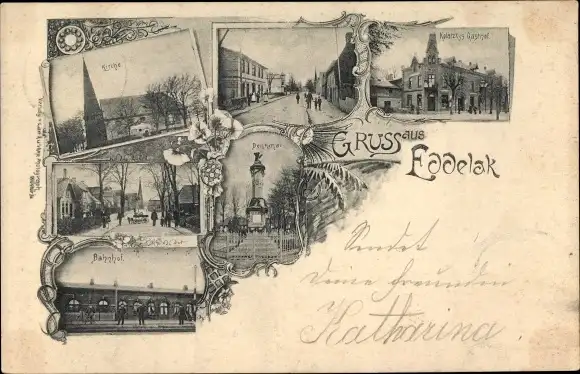 Kirche
Kolatzky's Gasthof.
GRUSS aus
EDDELAK
Denkmal
Bahnhof.
Sendet
Deine Freundin
Katharina